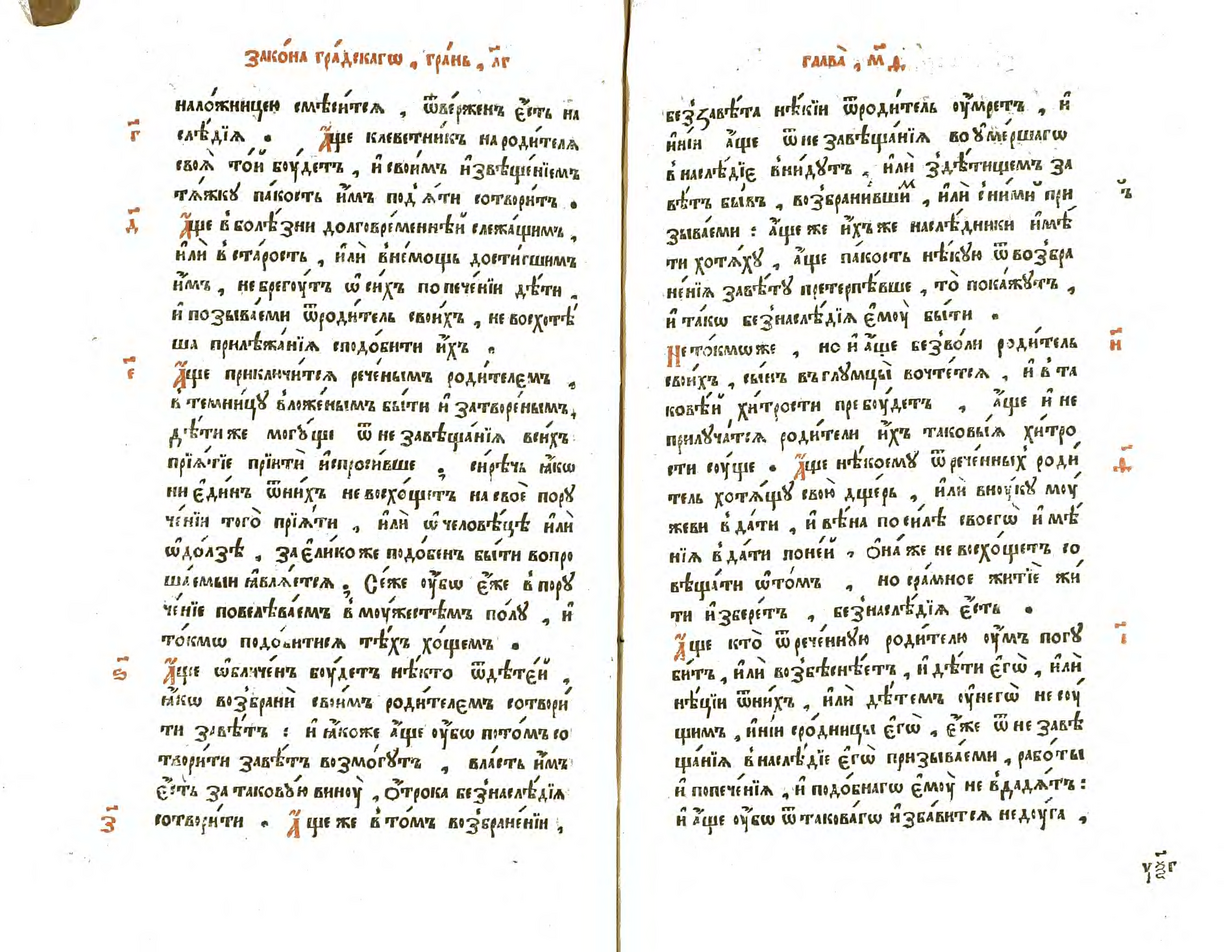 Зако́на гра́дскагѡ , гра́нь , л҃г
нало́жницею смѣ́сится , ѿве́рженъ є҆́сть на
г҃
слѣ́дїѧ . А҆́ще клеветни́къ на роди́телѧ
своѧ̀ то́й боу́детъ , и҆ свои́мъ и҆звѣще́нїемъ
тѧ́жку па́кость и҆̀мъ под̾ѧ́ти сотвори́тъ .
д҃
А҆́ще в̾болѣ́зни долговре́меннѣй слежа́щимъ ,
и҆лѝ в̾ста́рость , и҆лѝ в̾не́мощь дости́гшимъ
и҆̀мъ , не брегоу́тъ ѡ҆ си́хъ попече́нїи дѣ́ти ,
и҆ позыва́еми ѿроди́тель свои́хъ , не восхотѣ́
ша прилѣжа́нїѧ сподо́бити и҆́хъ .
є҃
А҆́ще приключи́тсѧ рече́нымъ роди́телємъ ,
в̾темни́цу вло́женымъ бы́ти и҆ затворе́нымъ,
дѣ́ти же могу́ще ѿ не завѣща́нїѧ всѣ́хъ
прїѧ́тїе прїи́ти и҆спроси́вше , си́рѣчь ꙗ҆́кѡ
ни є҆ди́нъ ѿни́хъ не восхо́щетъ на своѐ пору
че́нїи того̀ прїѧ́ти , и҆лѝ ѡ҆ человѣ́цѣ и҆лѝ
ѡ҆до́лзѣ , за є҆ли́ко же подо́бенъ бы́ти вопро
ша́емыи ꙗ҆влѧ́етсѧ , Се́же оу҆́бѡ є҆́же в̾пору
че́нїе повелѣва́емъ в̾ моу́жестѣмъ полу̀ , и҆
то́кмѡ подо́битисѧ тѣ́хъ хо́щемъ .
ѕ҃
А҆́ще ѡ҆бличе́нъ боу́детъ нѣ́кто ѿдѣте́й ,
ꙗ҆́кѡ возбранѝ свои́мъ роди́телємъ сотвори́
ти завѣ́тъ : и҆ ꙗ҆́коже а҆́ще оу҆́бѡ пото́мъ со
твори́ти завѣ́тъ возмо́гутъ , вла́сть и҆̀мъ
є҆́сть за такову́ю виноу̀ , ѻ҆́трока без̾наслѣ́дїѧ
з҃
сотвори́ти . А҆́ще же в̾то́мъ возбране́нїи ,
глава̀ , м҃д
без̾завѣ́та нѣ́кїи ѿроди́тель оу҆́мретъ , и҆
и҆ні́и а҆́ще ѿ не завѣща́нїѧ во у҆ме́ршагѡ
в̾ наслѣ́дїе вни́дутъ , и҆лѝ з̾дѣ́тищемъ за
вѣ́тъ бы́въ , возбрани́вшимъ , и҆лѝ с ни́ми при
зыва́еми : а҆́ще же и҆́хъ же наслѣ́дники и҆мѣ́
ти хотѧ́ху , а҆́ще па́кость нѣ́кую ѿ возбра
не́нїѧ завѣ́ту претерпѣ́вше , то̀ пока́жутъ ,
и҆ та́кѡ без̾наслѣ́дїѧ є҆моу̀ бы́ти .
и҃
Не то́кмѡ же , но и҆ а҆́ще без̾во́ли роди́тель
свои́хъ , сы́нъ въ глумцы̀ вочте́тсѧ , и҆ в̾ та
ковѣ́й хи́трости пребоу́детъ , а҆́ще и҆ не
прилуча́тсѧ роди́тели и҆́хъ таковы́ѧ хи́тро
ѳ҃
сти соу́ще . А҆́ще нѣ́коему ѿ рече́нныхъ роди́
тель хотѧ́щу свою̀ дще́рь , и҆лѝ вноу́ку моу́
жеви в̾да́ти , и҆ вѣ́на по си́лѣ своегѡ̀ и҆мѣ́
нїѧ в̾да́ти по не́й , ѻ҆на́ же не восхо́щетъ со
вѣща́ти ѡ҆то́мъ , но сра́мное житїѐ жи́
ти и҆збере́тъ , без̾наслѣ́дїѧ є҆́сть .
і҃
А҆́ще кто̀ ѿ рече́нную роди́телю оу҆́мъ погу
би́тъ , и҆лѝ возбѣснѣ́етъ , и҆ дѣ́ти є҆гѡ̀ , и҆лѝ
нѣ́цїи ѿни́хъ , и҆лѝ дѣ́темъ оу҆ негѡ̀ не соу́
щимъ , и҆ні́и сро́дницы є҆гѡ̀ , є҆́же ѿ не завѣ
ща́нїѧ в̾ наслѣ́дїе є҆гѡ̀ призыва́еми , рабо́ты
и҆ попече́нїѧ , и҆ подо́бнагѡ є҆моу̀ не в̾дадѧ́тъ :
и҆ а҆́ще оу҆́бѡ ѿ такова́гѡ и҆зба́витсѧ недоу́га ,